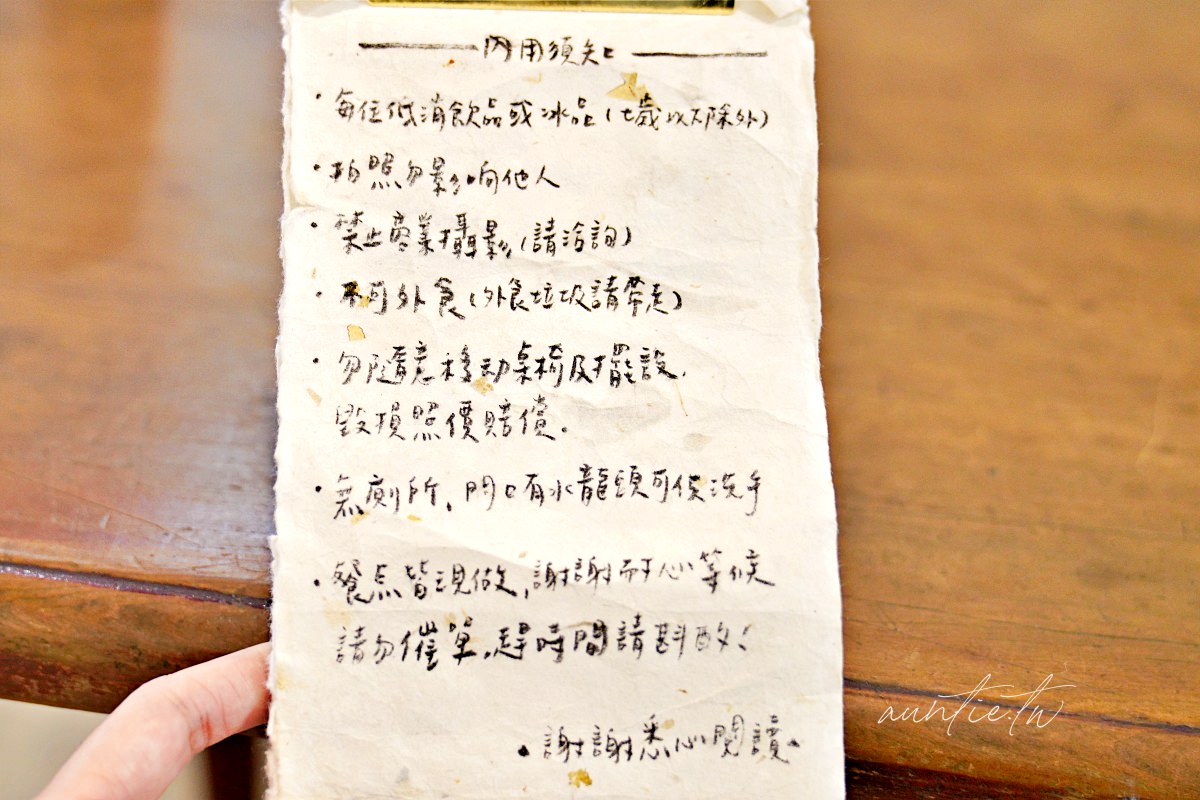 內用須知
·每位低消飲品或冰品(七歲以下除外)
·拍照勿影响他人
·禁止商業攝影(請洽詢)
·不可外食(外食垃圾請帶走)
·勿隨意移动桌椅及擺設.
毀損照價賠償。
·無廁所,門口有水龍頭可供洗手
·餐点皆現做,謝謝耐心等候
請勿催單,趕時間請斟酌!
·謝謝悉心閱讀·
auntie.tw